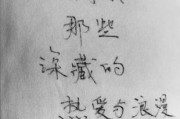 那些
深藏的
热爱与浪漫